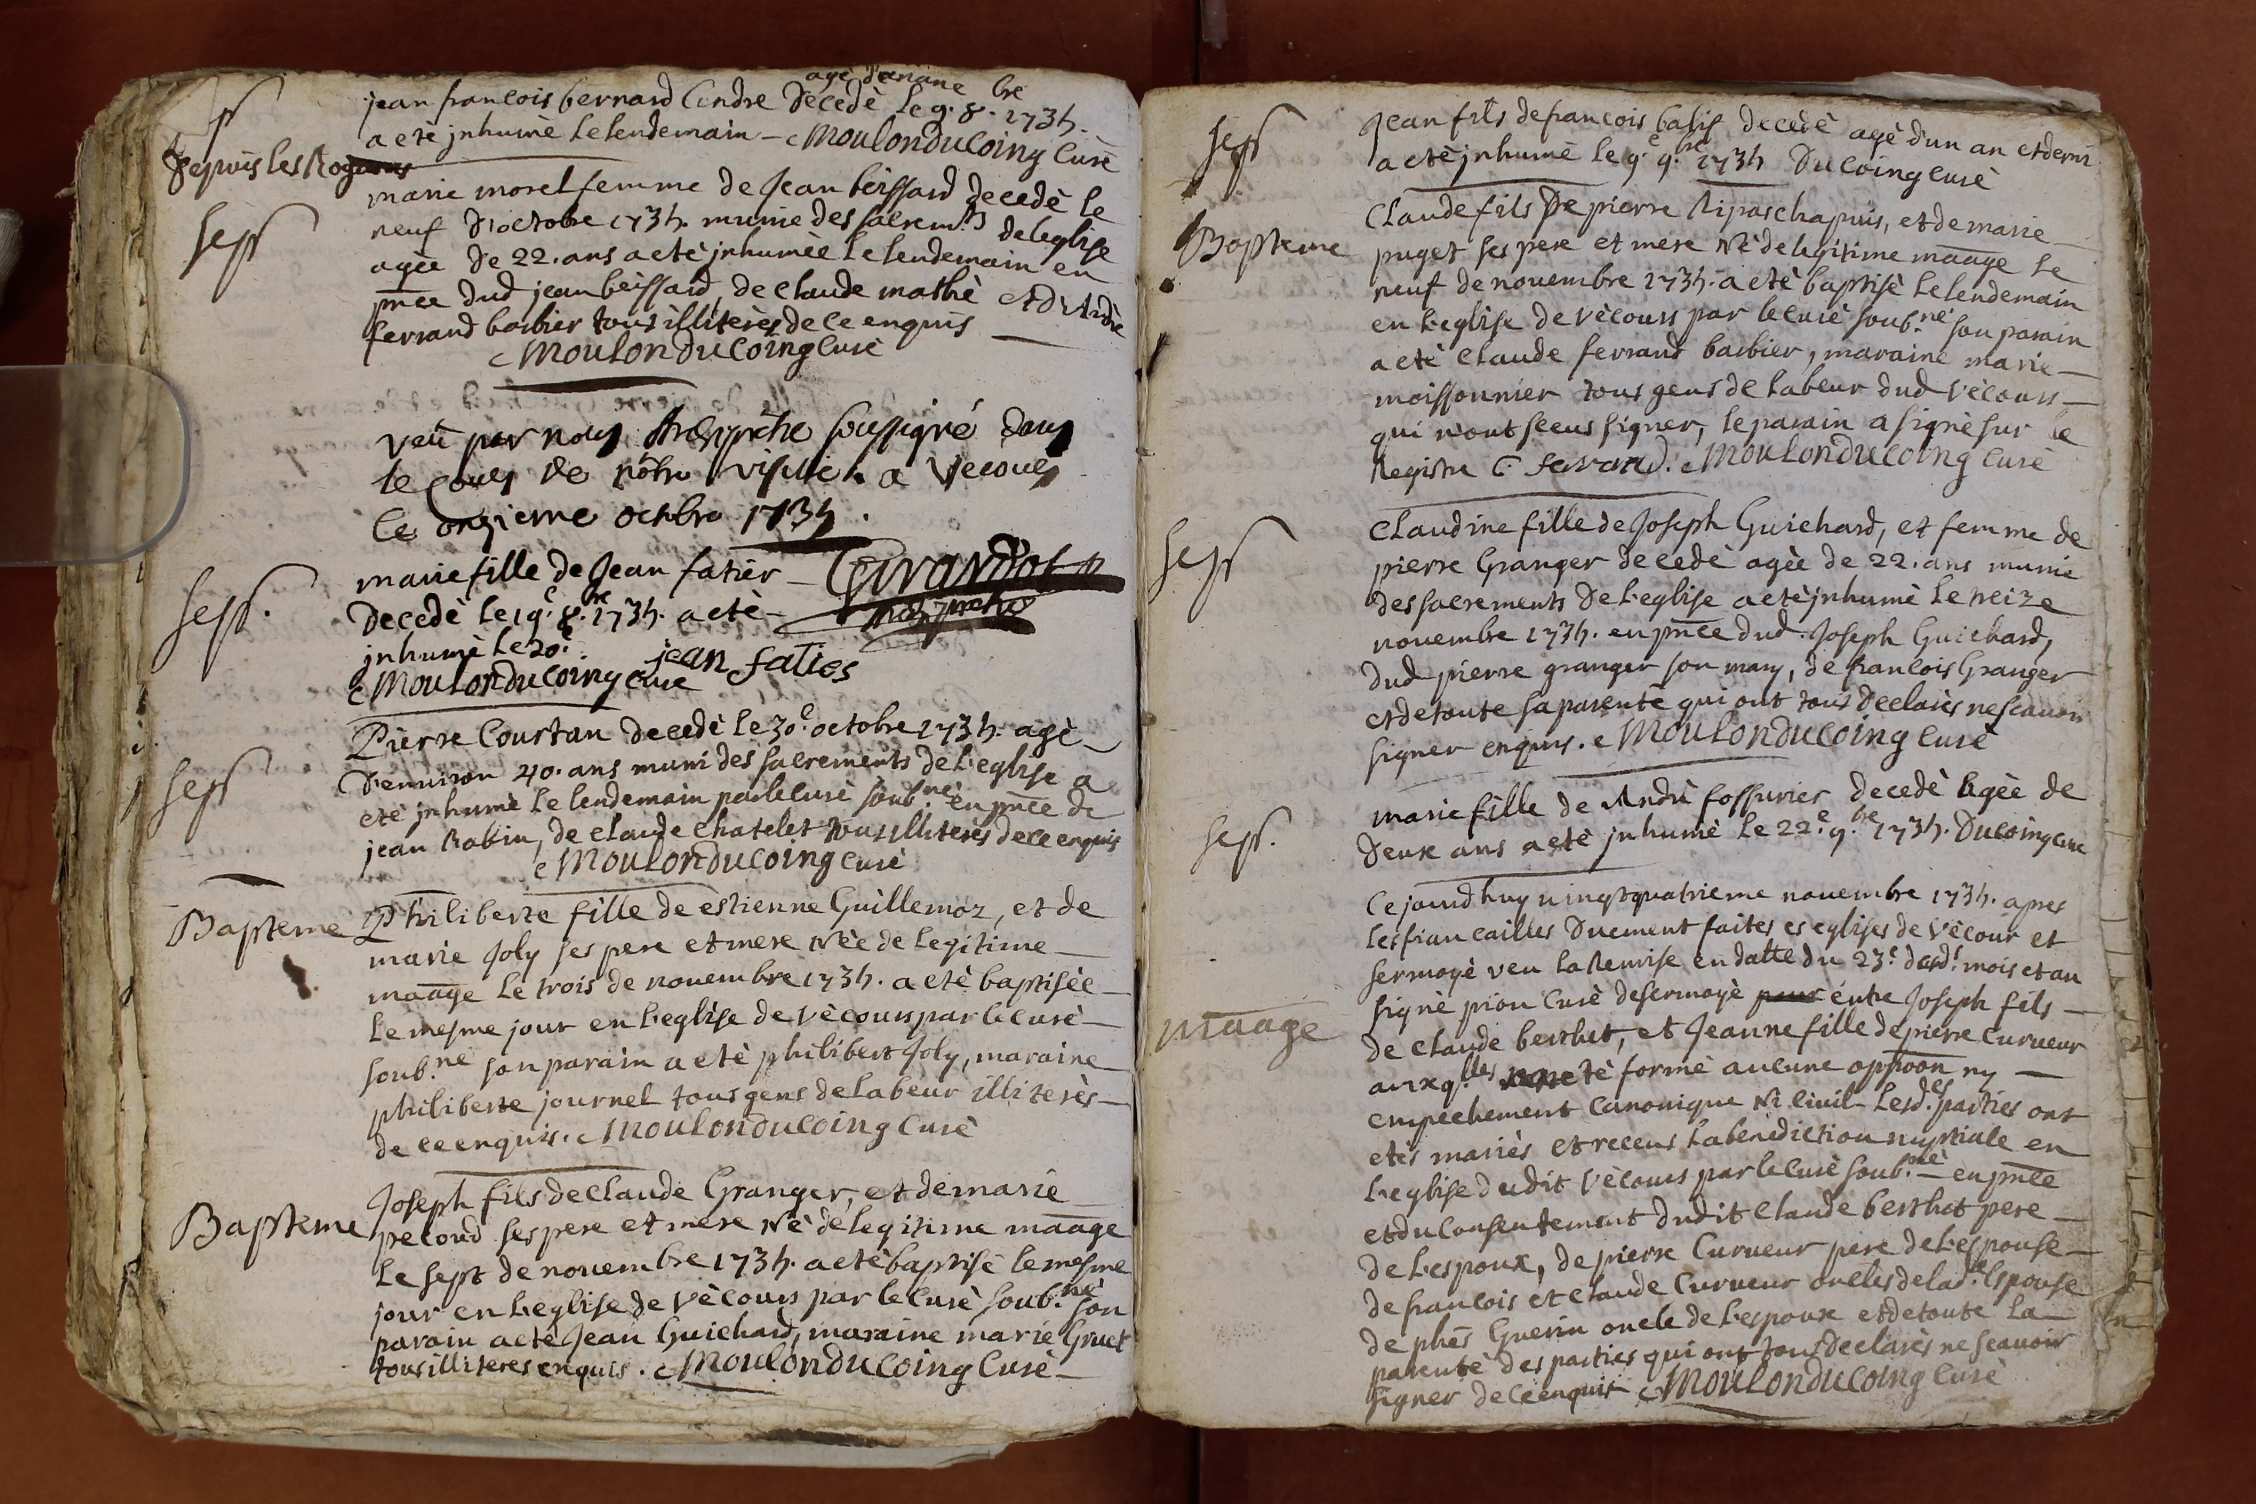 agé d'un an e
jean francois bernard Cendre decedè le 9. 8.bre 1734.
a etè jnhumè le lendemain - Moulonducoing Curè
sep
Depuis les Rog
marie morel femme de Jean beissard decedè le
sep
neuf d'octobre 1734. munie des sacrem.ts de leglise
agèe de 22. ans a etè jnhumèe le lendemain en
pnce dud jean beissard, de claude mathè et d'Andrè
ferrand barbier tous illiterès de ce enquis
Moulonducoing Curè
veu par nous Archiprêtre soussigné dans
le cours de nôtre visite a vecours
le onzieme octobre 1734.
Girardot
archiprêtre
sep.
marie fille de Jean fatier
decedè le 19.e 8.re 1734. a etè
jnhumè le 20.e
Moulonducoing curè
jean faties
sep
Pierre Courtan decedè le 30.e octobre 1734. agè
d'enuiron 40. ans muni des sacrements de L'eglise a
etè jnhumè le lendemain par le Curè soub.nè en pnce de
jean Robin, de claude chatelet tous illiterès de ce enquis
Moulonducoing curè
Bapteme
Philiberte fille de estienne Guillemoz, et de
marie Joly ses pere et mere Nèe de legitime
maage le trois de nouembre 1734. a etè baptisèe
le mesme jour en L'eglise de vècours par le curè
soub.né son parain a etè philibert Joly, maraine
philiberte journel tous gens de labeur illiterès
de ce enquis. Moulonducoing Curè
Bapteme
Joseph fils de claude Granger, et de marie
pecoud ses pere et mere Nè de legitime maage
le sept de nouembre 1734. a etè baptisè le mesme
jour en L'eglise de vècours par le Curè soub.nè son
parain a etè Jean Guichard, maraine marie Gruet
tous illiteres enquis. Moulonducoing Curè
sep
Jean fils de francois basis decedè agè d'un an et demi
a etè jnhumè le 9.e 9.bre 1734 Ducoing Curè
Bapteme
Claude fils De pierre Ripas chapuis, et de marie
puget ses pere et mere Nè de legitime maage le
neuf de nouembre 1734. a etè baptisè le lendemain
en L'eglise de vècours par le curè soub.né son parain
a etè claude ferrand barbier, maraine marie
moissonnier tous gens de labeur dud vècours
qui n'ont sceus signer, le parain a signè sur le
Registre C. ferrand. Moulonducoing Curè
sep
Claudine fille de Joseph Guichard, et femme de
pierre Granger decedè agèe de 22. ans munie
des sacrements de L'eglise a etè jnhumè le treize
nouembre 1734. en pnce dud. Joseph Guichard,
dud pierre granger son mary, de francois Granger
et de toute sa parentè qui ont tous declarès ne scauoir
signer enquis. Moulonducoing Curè
sep.
marie fille de Andrè fossurier decedè agèe de
deux ans a etè jnhumè le 22.e 9.bre 1734. Ducoing cure
Ce jourd'huy uingtquatrieme nouembre 1734. apres
les fiancailles duement faites es eglises de vècour et
sermoyè veu la Remise en datte du 23.e desd.t mois et an
signè pion Curè de sermoyè pour entre Joseph fils
maage
de claude berthet, et Jeanne fille de pierre curueur
auxq.lles etè formè aucune oppoon ny
empechement canonique Ni ciuil Lesd.es parties ont
etès mariès et receus la benediction nuptiale en
L'eglise dudit vècours par le Curè soub.né en pnce
et du consentement dudit claude berthet pere
de L'espoux, de pierre Curueur pere de L'espouse
de francois et claude Curueur oncles de lad.e Espouse
de phès Guerin oncle de L'espoux et de toute la
parentè des parties qui ont tous declarès ne scauoir
signer de ce enquis Moulonducoing Curè